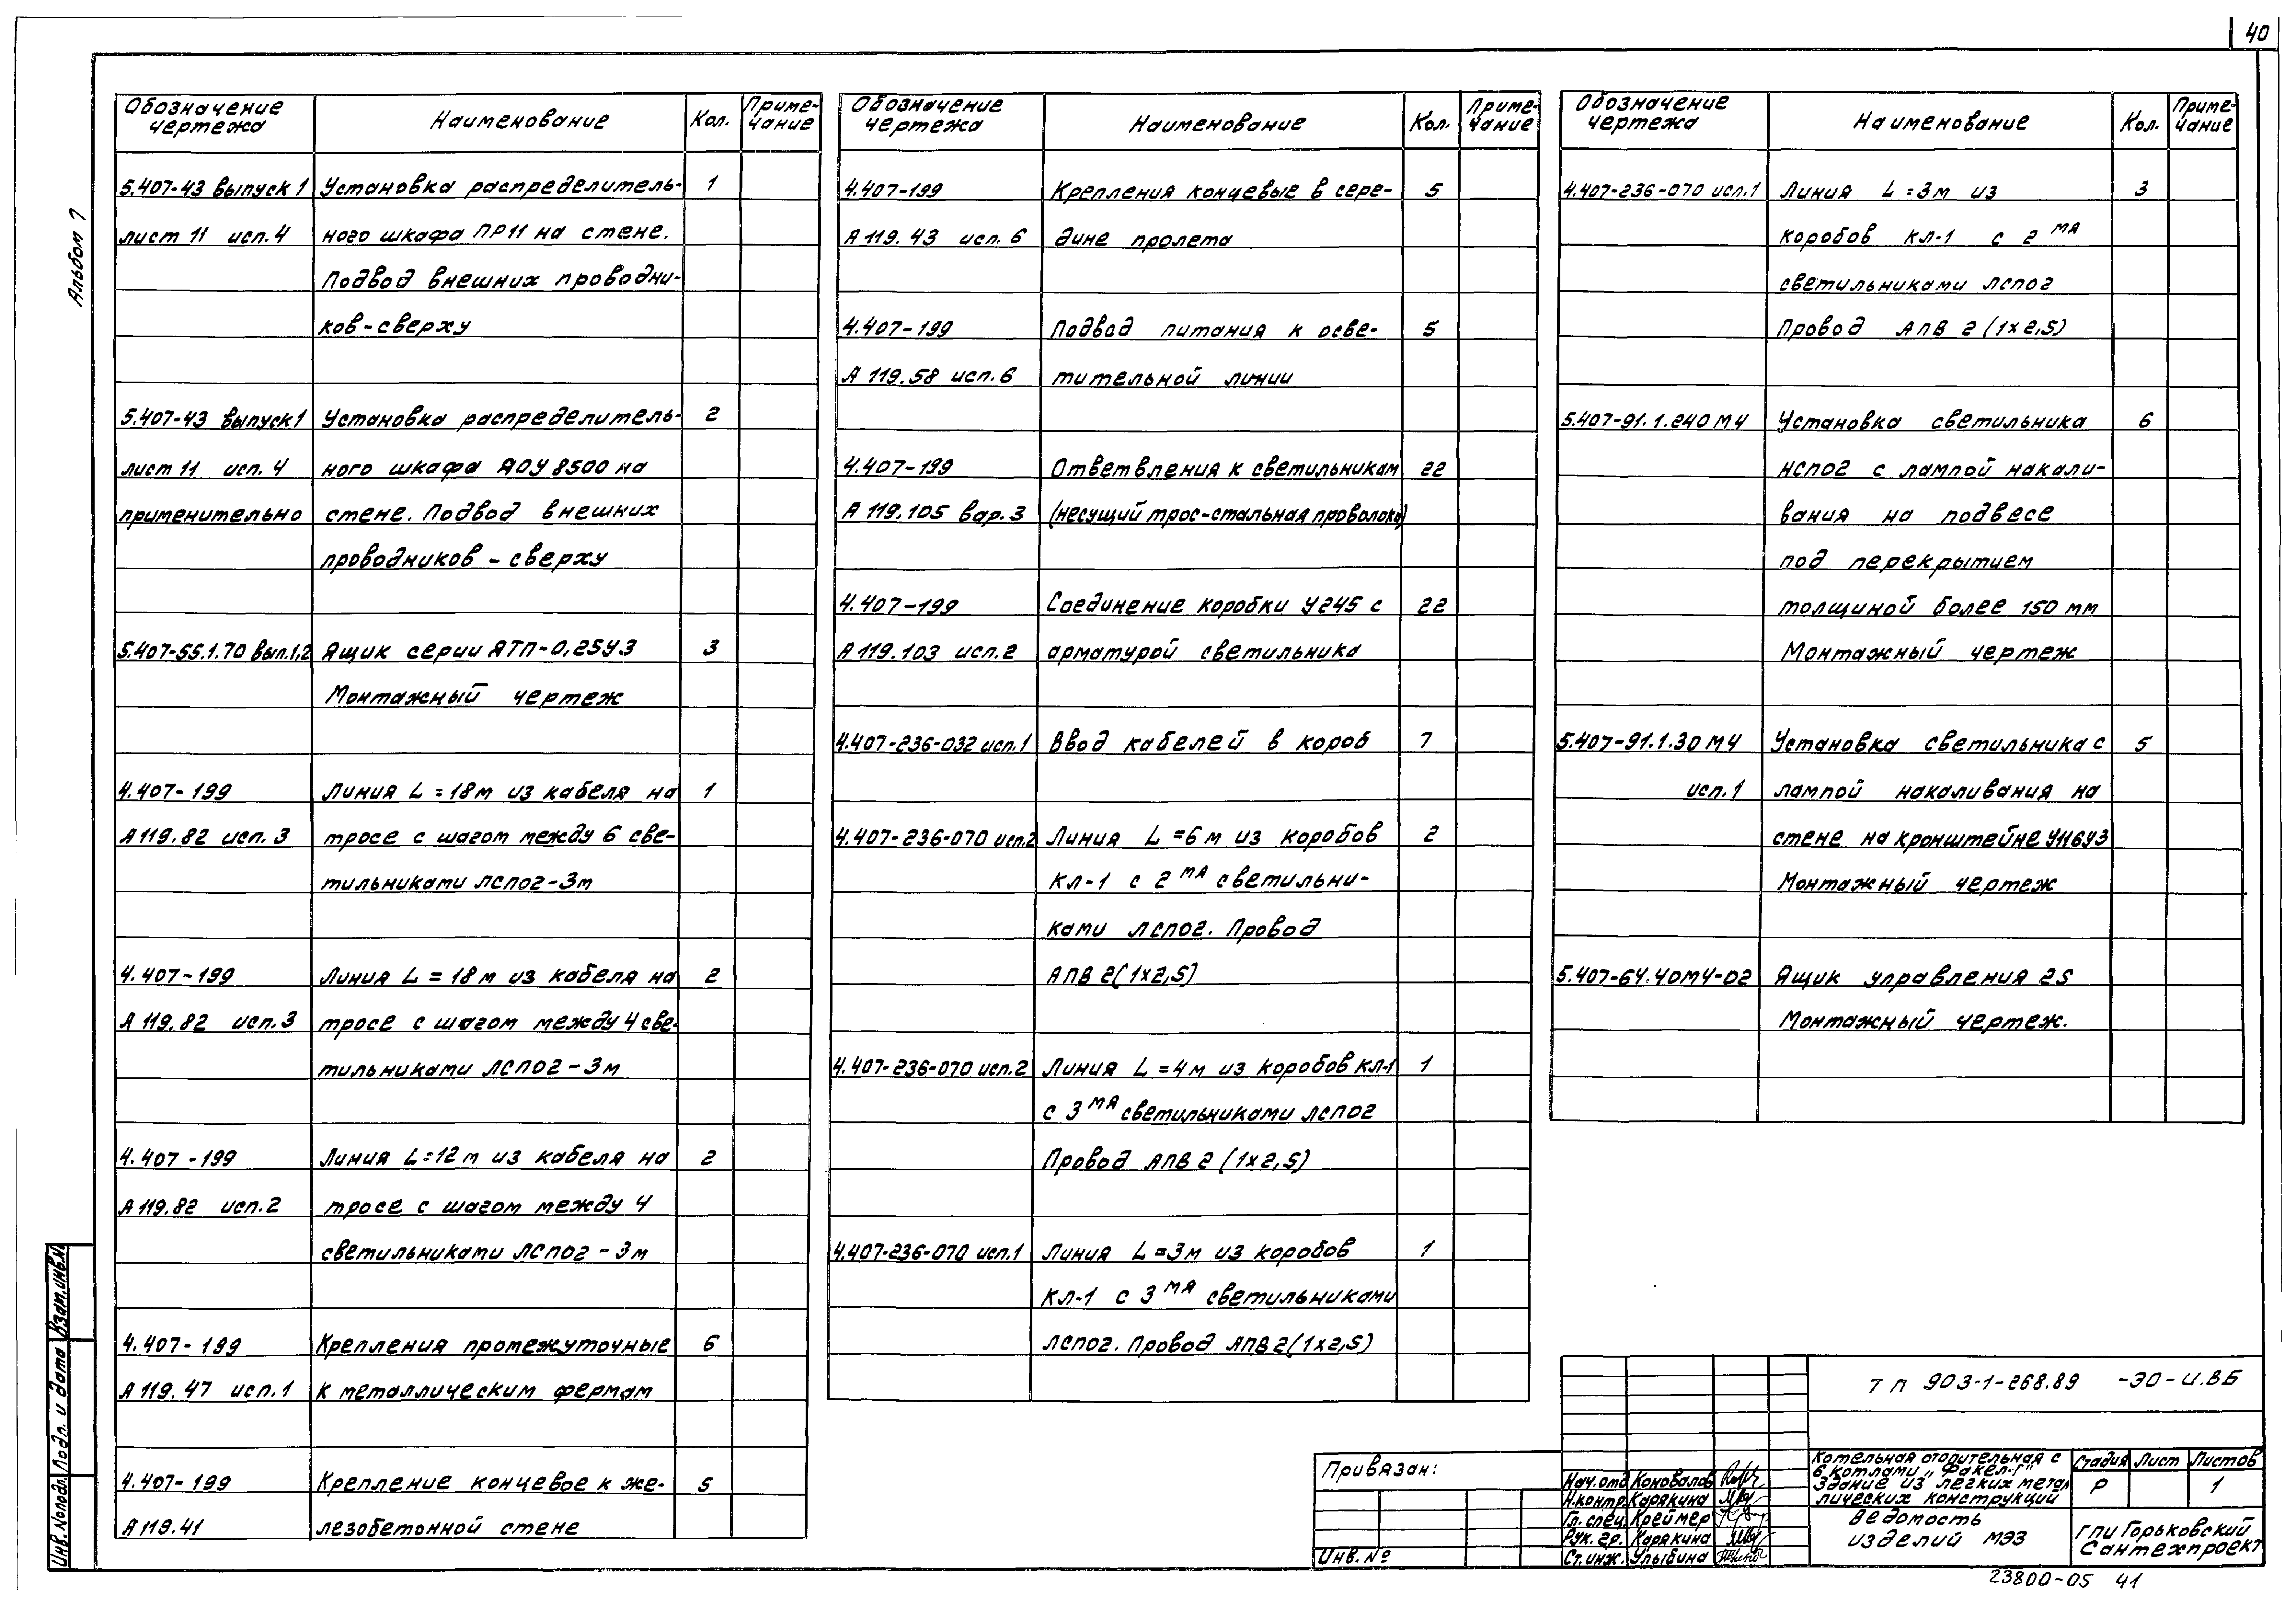 40
Альбом 7
Обозначение чертежа Наименование Кол. Приме-чание
5.407-43 выпуск 1 Установка распределитель- 1
лист 11 исп. 4 ного шкафа ПР11 на стене.
Подвод внешних проводни-
ков-сверху
5.407-43 выпуск 1 Установка распределитель- 2
лист 11 исп. 4 ного шкафа ЯОУ 8500 на
применительно стене. Подвод внешних
проводников - сверху
5.407-55.1.70 вып.1,2 Ящик серии ЯТП-0,25У3 3
Монтажный чертеж
4.407-199 Линия L = 18м из кабеля на 1
А 119.82 исп. 3 тросе с шагом между 6 све-
тильниками ЛСП02-3м
4.407-199 Линия L = 18м из кабеля на 2
А 119.82 исп. 3 тросе с шагом между 4 све-
тильниками ЛСП02-3м
4.407-199 Линия L=12м из кабеля на 2
А 119.82 исп. 2 тросе с шагом между 4
светильниками ЛСП02-3м
4.407-199 Крепления промежуточные 6
А 119.47 исп. 1 к металлическим фермам
4.407-199 Крепление концевое к же- 5
А 119.41 лезобетонной стене
Обозначение чертежа Наименование Кол. Приме-чание
4.407-199 Крепления концевые в сере- 5
А 119.43 исп. 6 дине пролета
4.407-199 Подвод питания к осве- 5
А 119.58 исп. 6 тительной линии
4.407-199 Ответвления к светильникам 22
А 119.105 вар. 3 (несущий трос-стальная проволока)
4.407-199 Соединение коробки У245 с 22
А 119.103 исп. 2 арматурой светильника
4.407-236-032 исп.1 Ввод кабелей в короб 7
4.407-236-070 исп.2 Линия L =6м из коробов 2
КЛ-1 с 2МЯ светильни-
ками ЛСП02. Провод
АПВ 2(1х2,5)
4.407-236-070 исп.2 Линия L =4м из коробов КЛ-1 1
с 3МЯ светильниками ЛСП02
Провод АПВ 2 (1х2,5)
4.407-236-070 исп.1 Линия L =3м из коробов 1
КЛ-1 с 3МЯ светильниками
ЛСП02. Провод АПВ 2(1х2,5)
Обозначение чертежа Наименование Кол. Приме-чание
4.407-236-070 исп.1 Линия L =3м из 3
коробов КЛ-1 с 2МЯ
светильниками ЛСП02
Провод АПВ 2 (1х2,5)
5.407-91.1.240 МЧ Установка светильника 6
НСП02 с лампой накали-
вания на подвесе
под перекрытием
толщиной более 150 мм
Монтажный чертеж
5.407-91.1.30 МЧ Установка светильника с 5
исп.1 лампой накаливания на
стене на кронштейне У116У3
Монтажный чертеж
5.407-64.40МЧ-02 Ящик управления 25
Монтажный чертеж.
Взам.инв.№
Подп. и дата
Инв. № подл.
Привязан:
Инв. №
ТП 903-1-268.89 -ЭО-И.ВБ
Нач.отд Коновалов
Н.контр Карякина
Гл. спец. Креймер
Рук. гр. Карякина
Ст. инж. Улыбина
Котельная отопительная с
6 котлами „Факел-Г"
Здание из легких метал
лических конструкций
Стадия Лист Листов
Р 1
Ведомость
изделий МЭЗ
ГПИ Горьковский
Сантехпроект
23800-05 41